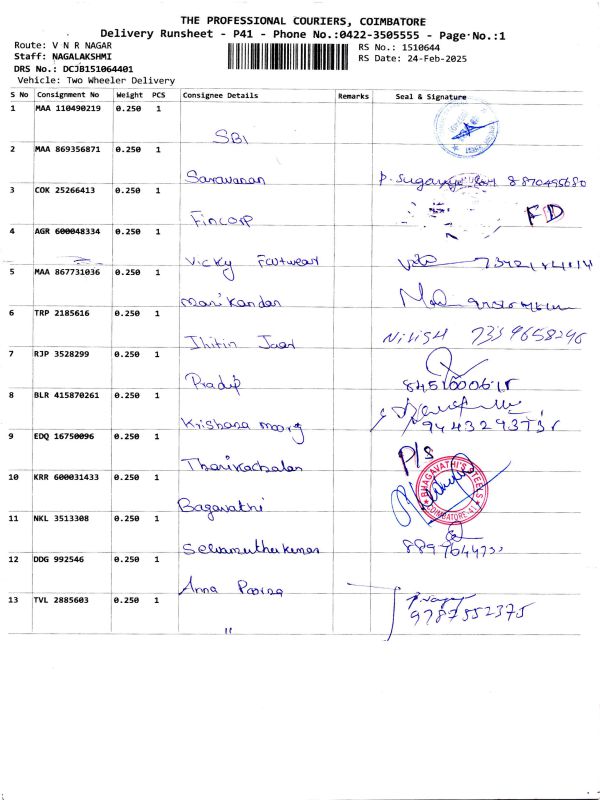 THE PROFESSIONAL COURIERS, COIMBATORE
Delivery Runsheet - P41 - Phone No.:0422-3505555 - Page No.:1
Route: V N R NAGAR
RS No.: 1510644
Staff: NAGALAKSHMI
RS Date: 24-Feb-2025
DRS No.: DCJB151064401
Vehicle: Two Wheeler Delivery
S No Consignment No Weight PCS Consignee Details Remarks Seal & Signature
1 MAA 110490219 0.250 1
SBI
2 MAA 869356871 0.250 1
Saravanan 8870495680
3 COK 25266413 0.250 1
Fincorp FD
4 AGR 600048334 0.250 1
Vicky Footwear
5 MAA 867731036 0.250 1
Manikandan
6 TRP 2185616 0.250 1
Jhitin Nitish 7339658296
7 RJP 3528299 0.250 1
Pradip
8 BLR 415870261 0.250 1
Krishana moorg
9 EDQ 16750096 0.250 1
P/S
Tharikachalan
10 KRR 600031433 0.250 1
BHAGAVATHI'S STEELS
COIMBATORE-41
Bagavathi
11 NKL 3513308 0.250 1
Selvamuthukumar
12 DDG 992546 0.250 1
Anna Poorna
13 TVL 2885603 0.250 1
9787552375
"